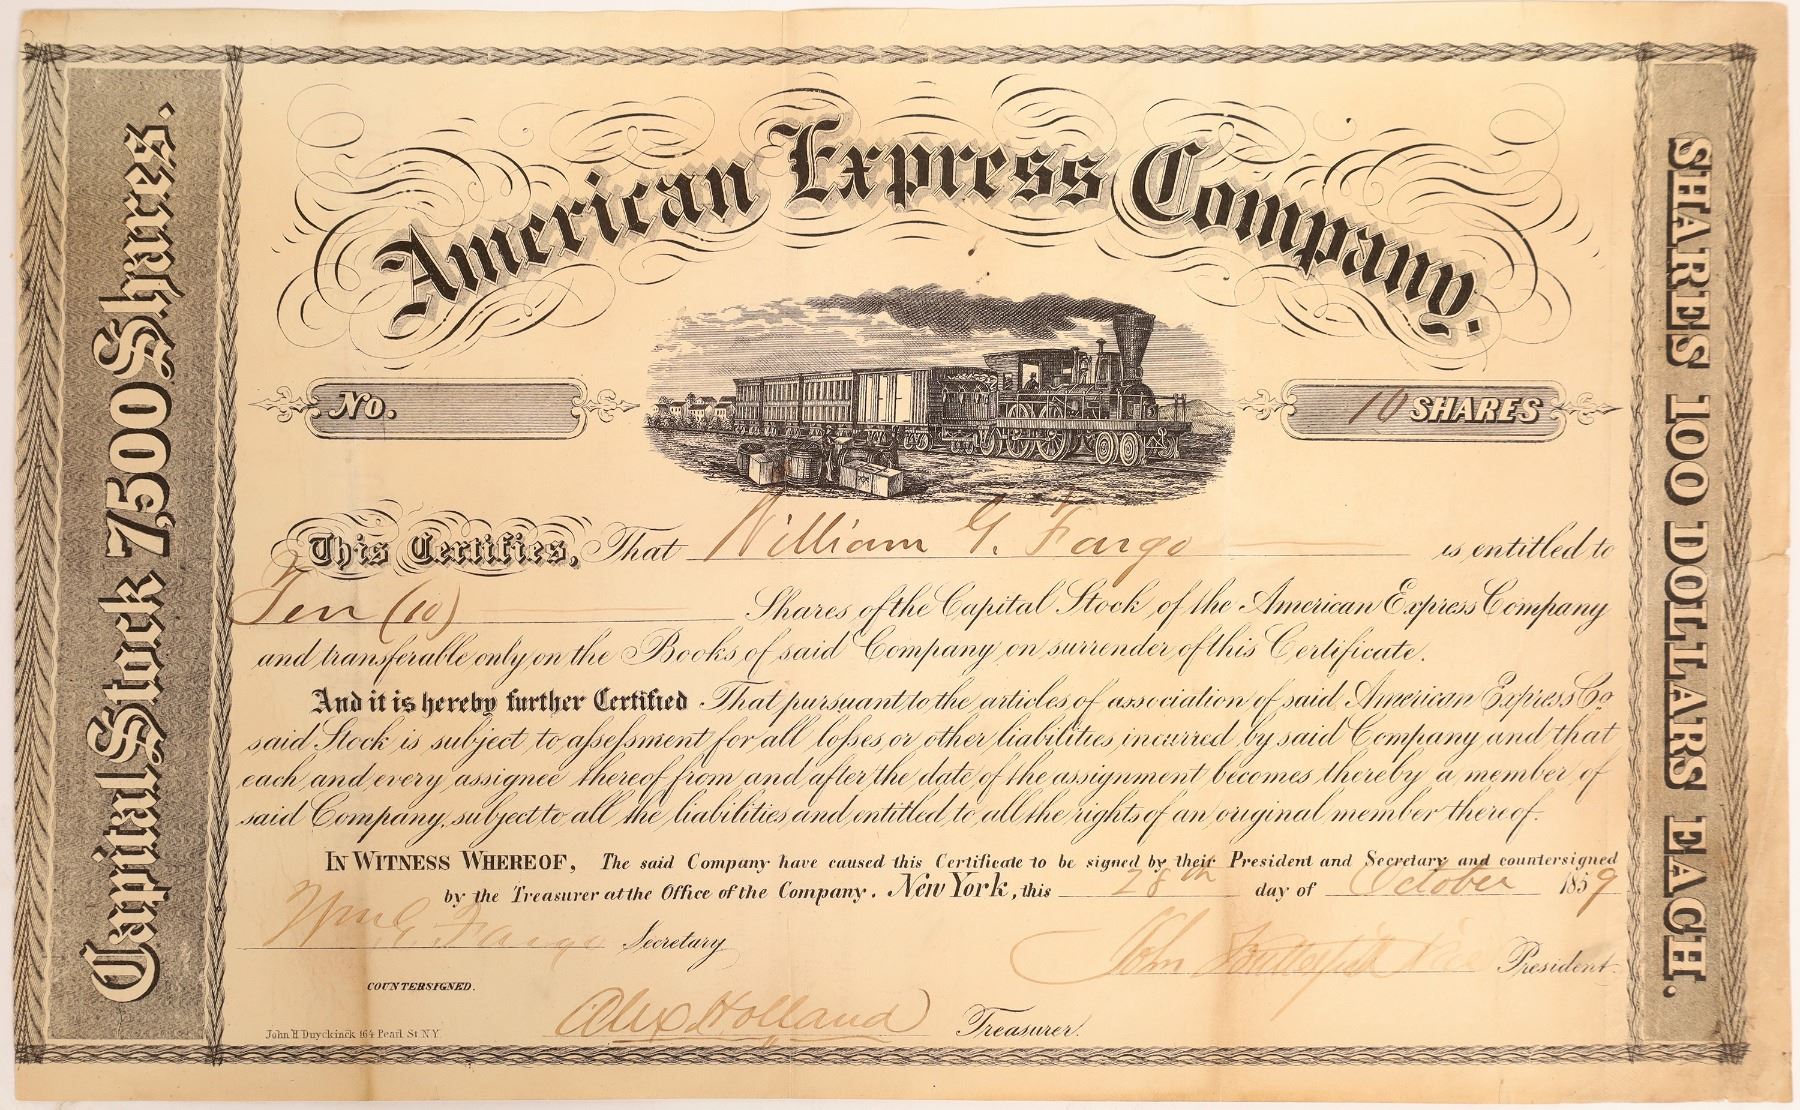 American Express Company.
Capital Stock 7,500 Shares.
SHARES 100 DOLLARS EACH.
No.
10 SHARES
This Certifies, That William G. Fargo is entitled to
Ten (10) Shares of the Capital Stock of the American Express Company
and transferable only on the Books of said Company on surrender of this Certificate.
And it is hereby further Certified That pursuant to the articles of association of said American Express Co.
said Stock is subject to assessment for all losses or other liabilities incurred by said Company and that
each and every assignee thereof from and after the date of the assignment becomes thereby a member of
said Company, subject to all the liabilities and entitled to all the rights of an original member thereof.
IN WITNESS WHEREOF, The said Company have caused this Certificate to be signed by their President and Secretary and countersigned
by the Treasurer at the Office of the Company. New York, this 28th day of October 1859
Wm G. Fargo Secretary
John Butterfield Vice President
COUNTERSIGNED.
Alex Holland Treasurer.
John H Duyckinck 164 Pearl St N.Y.